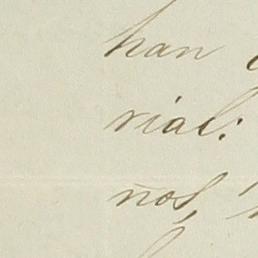 han
rial:
ños,